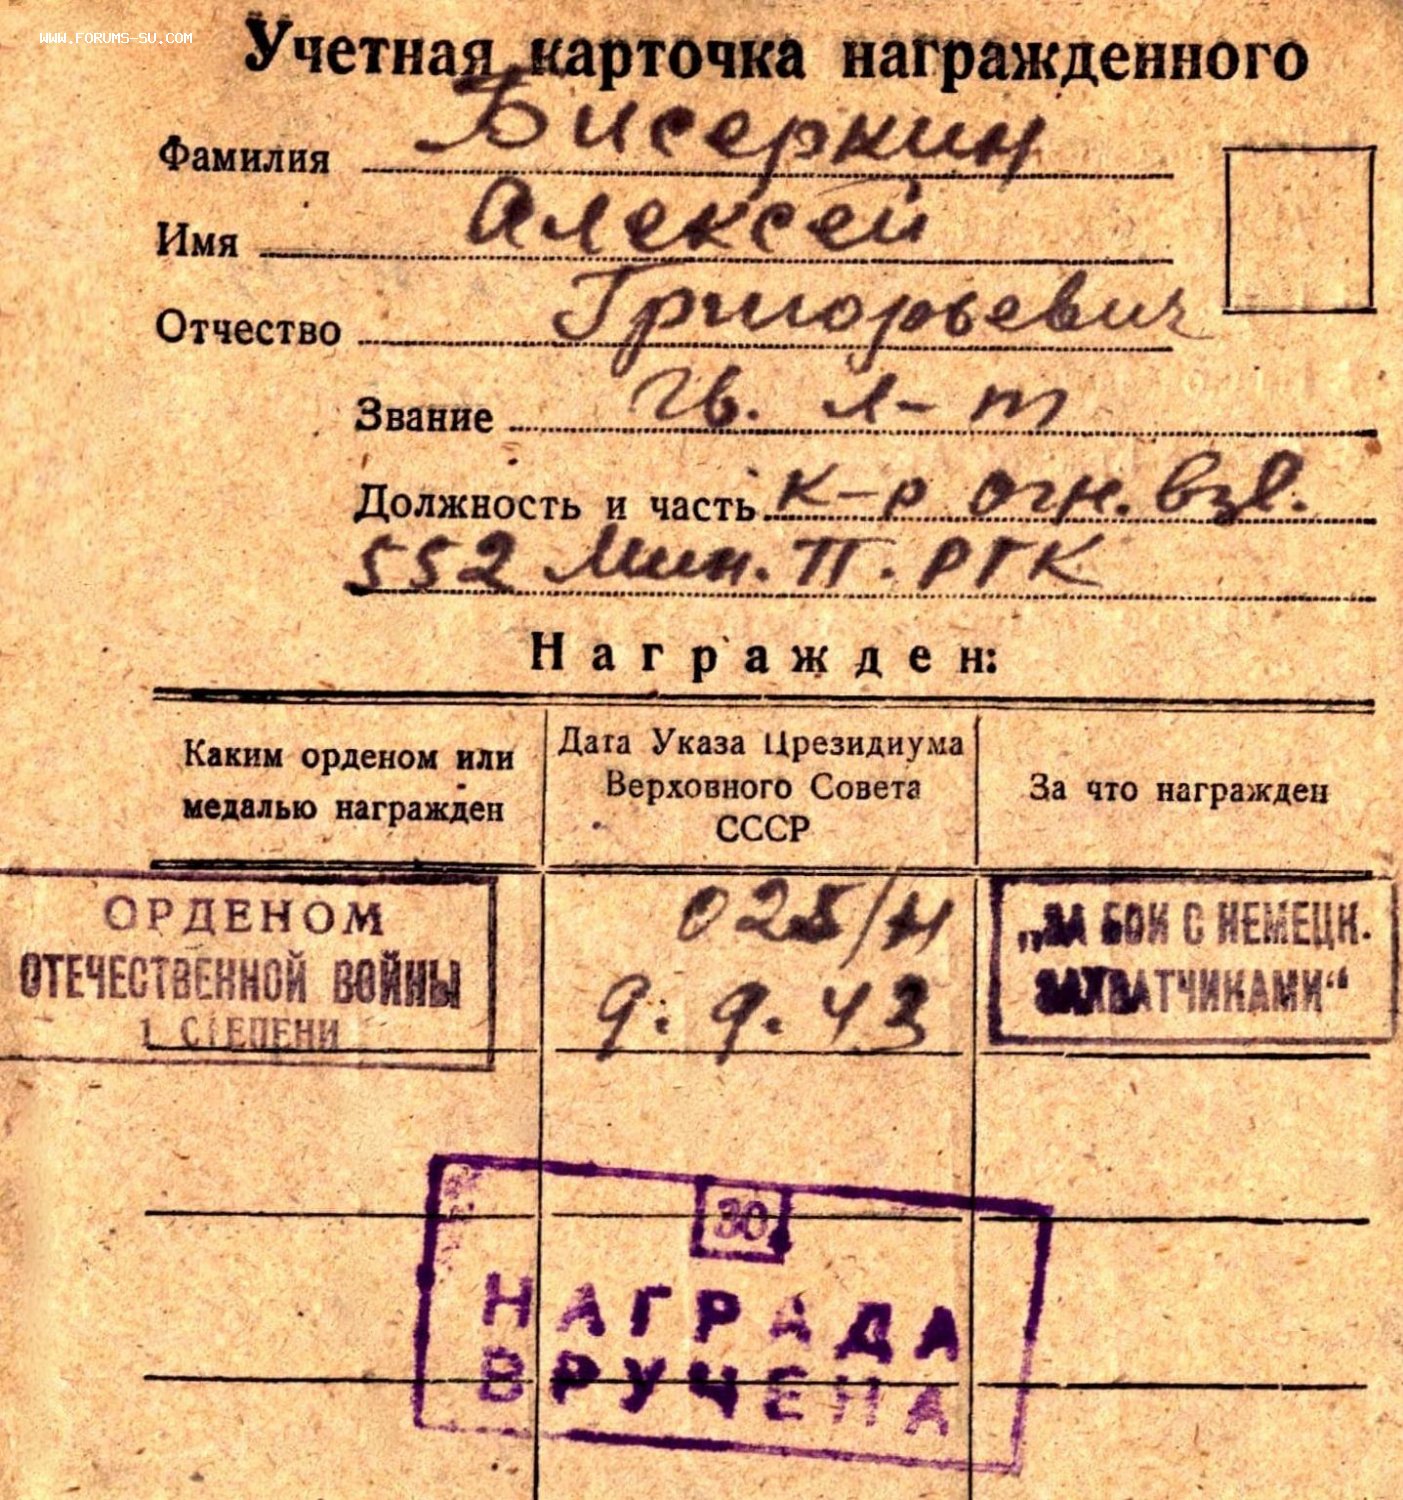 WWW.FORUMS-SU.COM
Учетная карточка награжденного
Фамилия Бисеркин
Имя Алексей
Отчество Григорьевич
Звание гв. л-т
Должность и часть к-р огн. взв.
552 Мин. П. РГК
Награжден:
Каким орденом или
медалью награжден
Дата Указа Президиума
Верховного Совета
СССР
За что награжден
ОРДЕНОМ
ОТЕЧЕСТВЕННОЙ ВОЙНЫ
1 СТЕПЕНИ
025/н
9.9.43
„ЗА БОИ С НЕМЕЦК.
ЗАХВАТЧИКАМИ“
30
НАГРАДА
ВРУЧЕНА